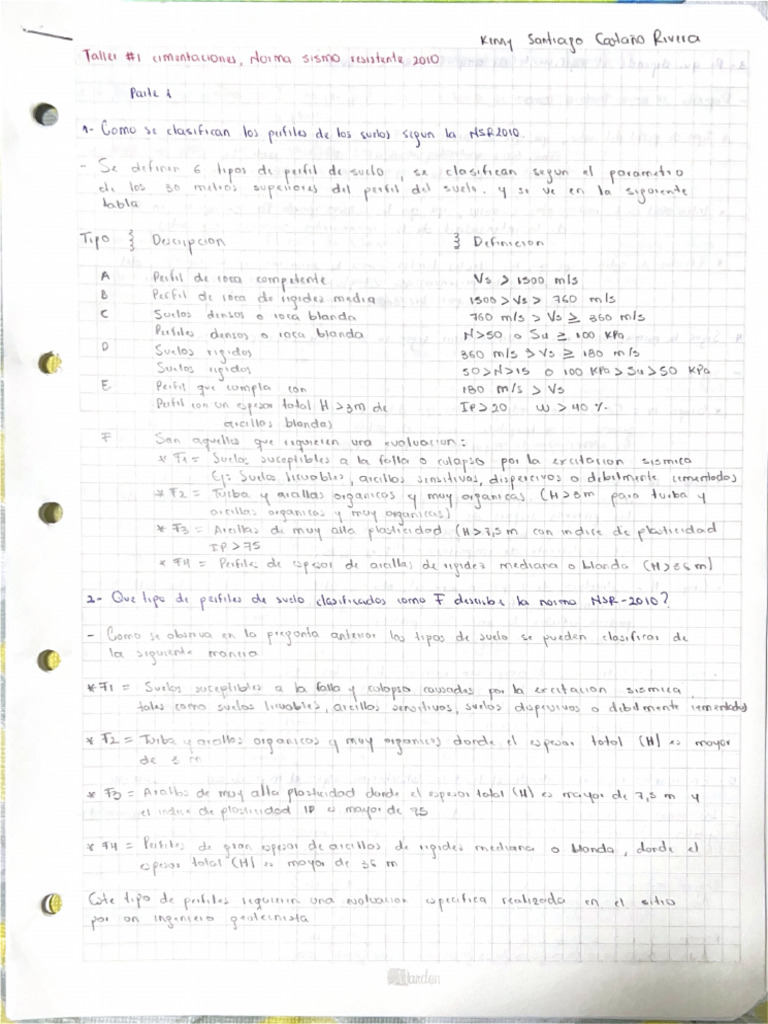 Kenny Santiago Castaño Rivera
Taller #1 cimentaciones, Norma sismo resistente 2010
Parte 1
1- Como se clasifican los perfiles de los suelos segun la NSR2010.
- Se definen 6 tipos de perfil de suelo, se clasifican segun el parametro
de los 30 metros superiores del perfil del suelo. y se ve en la siguiente
tabla
Tipo Descripcion Definicion
A Perfil de roca competente Vs > 1500 m/s
B Perfil de roca de rigidez media 1500 > Vs > 760 m/s
C Suelos densos o roca blanda 760 m/s > Vs ≥ 360 m/s
Perfiles densos o roca blanda N>50 o Su ≥ 100 KPa
D Suelos rigidos 360 m/s > Vs ≥ 180 m/s
Suelos rigidos 50>N>15 o 100 KPa > Su > 50 KPa
E Perfil que cumpla con 180 m/s > Vs
Perfil con un espesor total H >3m de IP>20 W > 40 %
arcillas blandas
F San aquellos que requieren una evaluacion:
* F1 = Suelos suceptibles a la falla o colapso por la excitacion sismica
Ej: Suelos licuables, arcillas sensitivas, dispercivos o debilmente cementados
* F2 = Turba y arcillas organicas y muy organicas (H>3m para turba y
arcillas organicas y muy organicas)
* F3 = Arcillas de muy alta plasticidad (H>7,5 m con indice de plasticidad
IP >75
* F4 = Perfiles de espesor de arcillas de rigidez mediana o blanda (H>36m)
2- Que tipo de perfiles de suelo clasificados como F describe la norma NSR-2010?
- Como se observa en la pregunta anterior los tipos de suelo se pueden clasificar de
la siguiente manera
* F1 = Suelos suceptibles a la falla y colapso causados por la excitacion sismica,
tales como suelos licuables, arcillas sensitivas, suelos dispersivos o debilmente cementados
* F2 = Turba y arcillas organicas y muy organicas donde el espesor total (H) es mayor
de m
* F3 = Arcillas de muy alta plasticidad donde el espesor total (H) es mayor de 7,5 m y
el indice de plasticidad IP es mayor de 75
* F4 = Perfiles de gran espesor de arcillas de rigidez mediana o blanda, donde el
espesor total (H) es mayor de 36 m
Este tipo de perfiles requieren una evaluacion especifica realizada en el sitio
por un ingeniero geotecnista